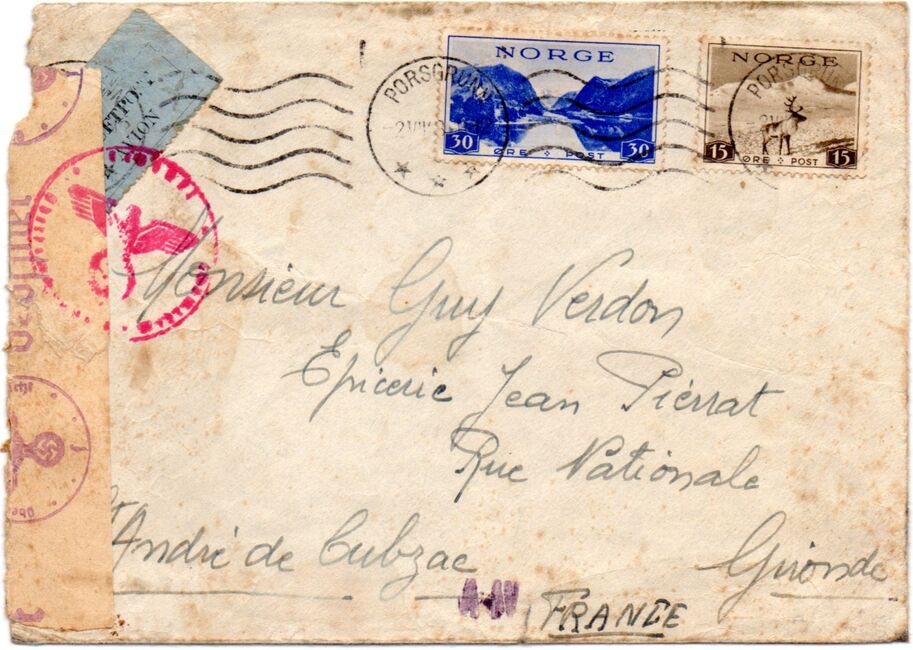 NORGE
30 30
ØRE POST
NORGE
15 15
ØRE POST
PORSGRUNN
PORSGRUNN
Geöffnet
Monsieur Guy Verdon
Epicerie Jean Piérrat
Rue Nationale
St André de Cubzac
Gironde
FRANCE